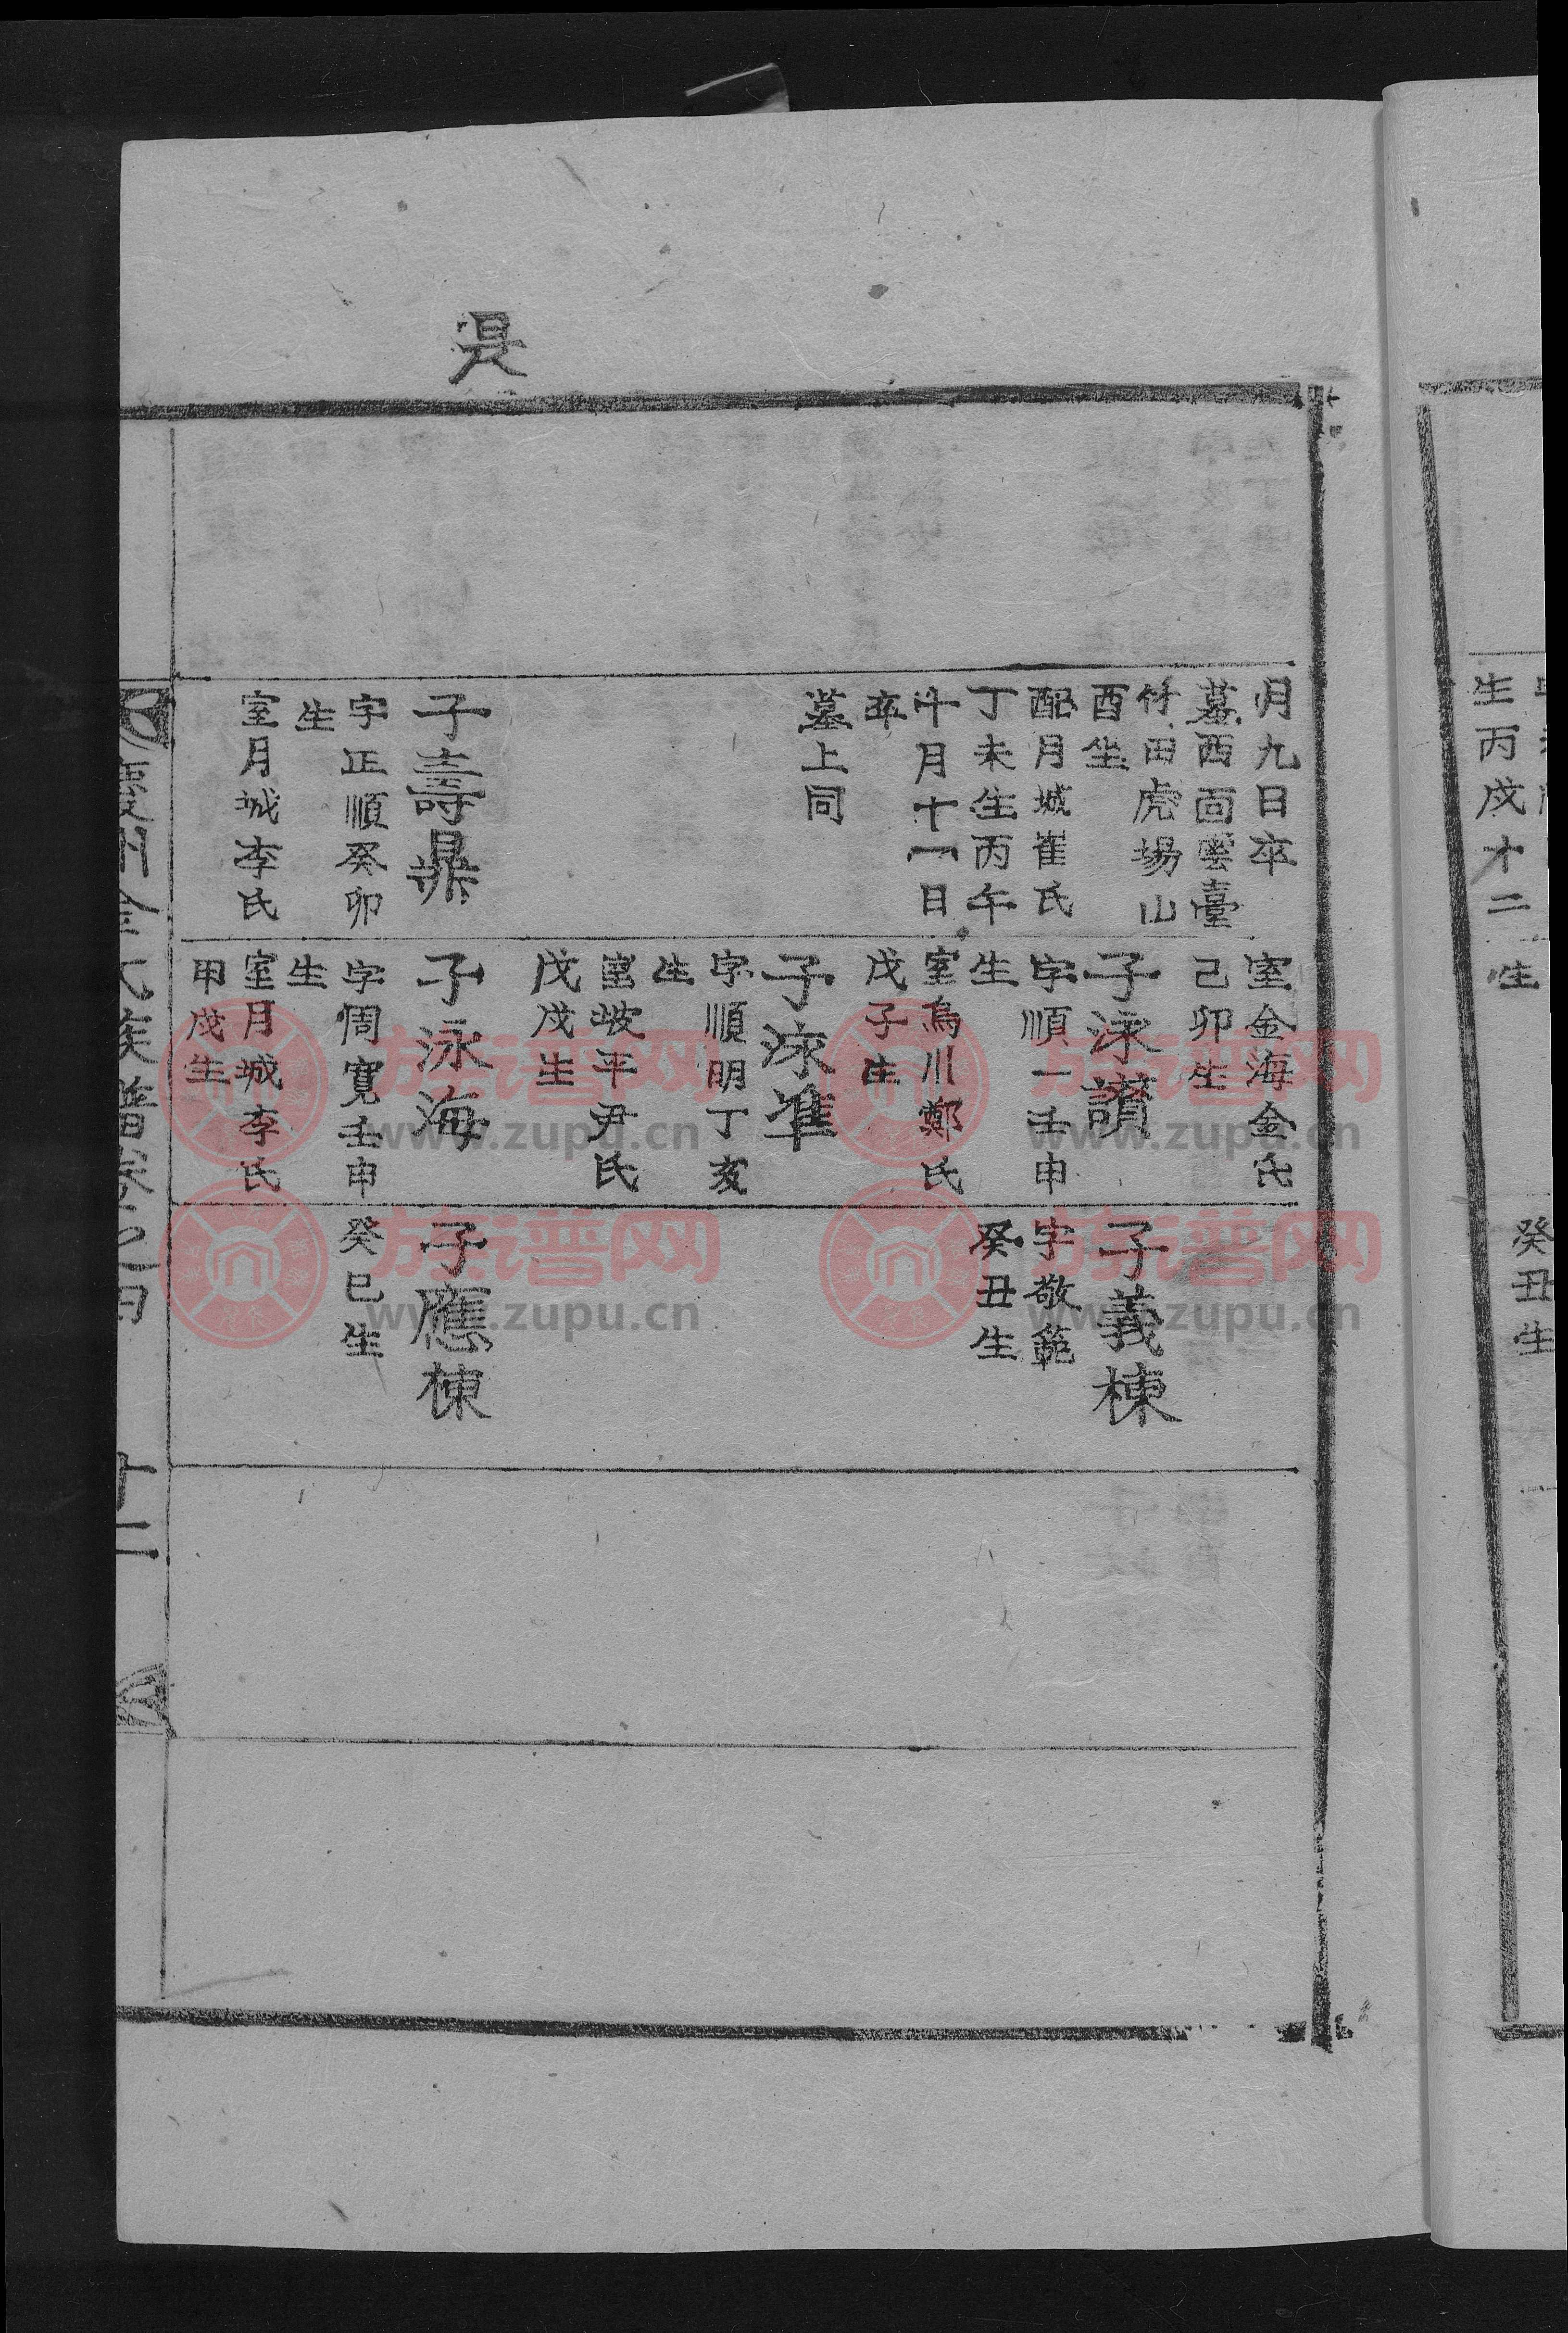 是
月九日卒
墓西面雲臺
竹田虎場山
酉坐
配月城崔氏
丁未生丙午
十月十一日
卒
墓上同
子壽鼎
字正順癸卯
生
室月城李氏
室金海金氏
己卯生
子泳讃
字順一壬申
生
室烏川鄭氏
戊子生
子泳準
字順明丁亥
生
室坡平尹氏
戊戌生
子泳海
字周寬壬申
生
室月城李氏
甲戌生
子義棟
字敬範
癸丑生
子應棟
癸巳生
慶州金氏族譜卷之四
十二
生丙戌才二
生
癸丑生
族谱网
www.zupu.cn
族谱网
www.zupu.cn
族谱网
www.zupu.cn
族谱网
www.zupu.cn